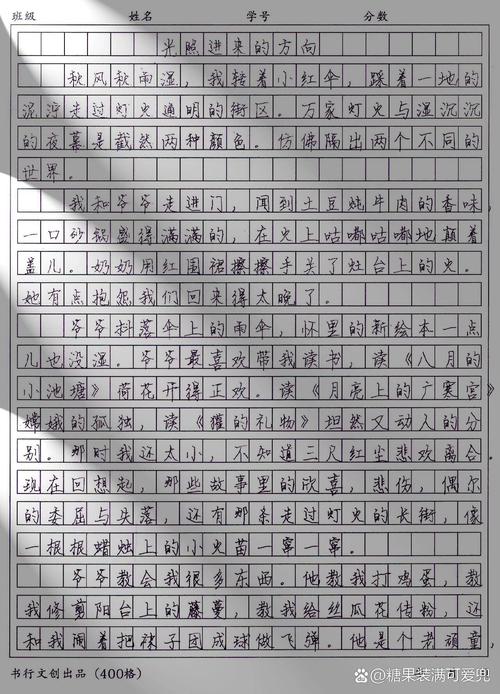 班级 姓名 学号 分数
光照进来的方向
秋风秋雨湿，我转着小红伞，踩着一地的
泥泞走过灯火通明的街区。万家灯火与湿沉沉
的夜幕是截然两种颜色。仿佛隔出两个不同的
世界。
我和爷爷走进门，闻到土豆炖牛肉的香味，
一口砂锅盛得满满的，在火上咕嘟咕嘟地颠着
盖儿。奶奶用红围裙擦擦手关了灶台上的火。
她有点抱怨我们回来得太晚了。
爷爷抖落伞上的雨伞，怀里的新绘本一点
儿也没湿。爷爷最喜欢带我读书，读《八月的
小池塘》荷花开得正欢。读《月亮上的广寒宫》
嫦娥的孤独，读《獾的礼物》坦然又动人的分
别。那时我还太小，不知道三尺红尘悲欢离合。
现在回想起，那些故事里的欣喜，悲伤，偶尔
的委屈与失落，还有那条走过灯火的长街，像
一根根蜡烛上的小火苗一窜一窜。
爷爷教会我很多东西。他教我打鸡蛋，教
我修剪阳台上的藤蔓，教我给丝瓜花传粉，还
和我闹着把袜子团成球做飞弹。他是个老顽童，
书行文创出品（400格） 第 页
百家号@糖果装满可爱兜